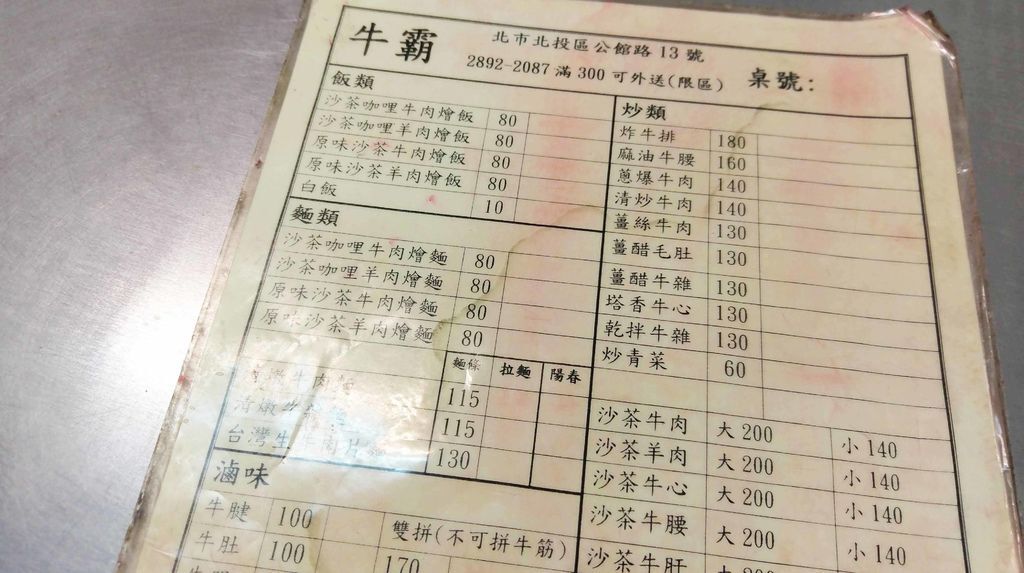 牛霸
北市北投區公館路 13 號
2892-2087 滿 300 可外送(限區)
桌號:
飯類
沙茶咖哩牛肉燴飯 80
沙茶咖哩羊肉燴飯 80
原味沙茶牛肉燴飯 80
原味沙茶羊肉燴飯 80
白飯 10
麵類
沙茶咖哩牛肉燴麵 80
沙茶咖哩羊肉燴麵 80
原味沙茶牛肉燴麵 80
原味沙茶羊肉燴麵 80
麵條 拉麵 陽春
牛肉麵 115
清燉牛 115
台灣生牛肉片麵 130
滷味
牛腱 100
雙拼(不可拼牛筋)
牛肚 100
170
炒類
炸牛排 180
麻油牛腰 160
蔥爆牛肉 140
清炒牛肉 140
薑絲牛肉 130
薑醋毛肚 130
薑醋牛雜 130
塔香牛心 130
乾拌牛雜 130
炒青菜 60
沙茶牛肉 大 200 小 140
沙茶羊肉 大 200 小 140
沙茶牛心 大 200 小 140
沙茶牛腰 大 200 小 140
沙茶牛肝